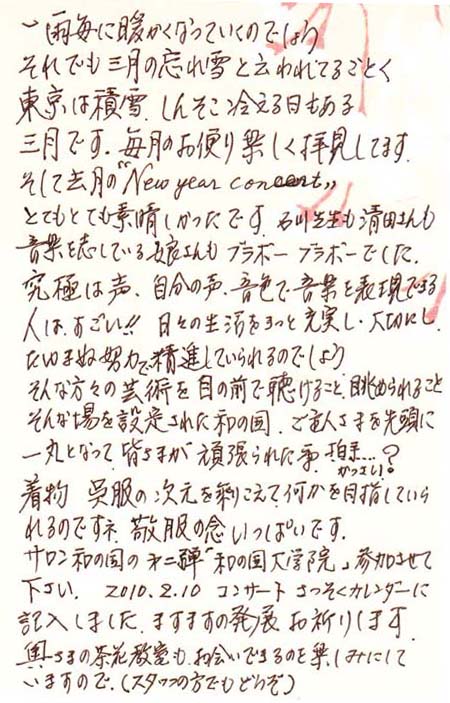 一雨毎に暖かくなっていくのでしょう
それでも三月の忘れ雪と云われてるごとく
東京は積雪、しんそこ冷える日もある
三月です。毎月のお便り楽しく拝見してます。
そして去月の"New year concert"
とてもとても素晴しかったです。石川先生も清田さんも
音楽を志している娘さんも ブラボー ブラボーでした。
究極は声、自分の声、音色で音楽を表現できる
人は、すごい!! 日々の生活をきっと充実し・大切にし、
たゆまぬ努力で精進していられるのでしょう
そんな方々の芸術を目の前で聴けること、眺められること
そんな場を設定された和の国、ご主人さまを先頭に
一丸となって、皆さまが頑張られた事、拍手…?
かっさい。
着物 呉服の次元を乗りこえて何かを目指していら
れるのですネ 敬服の念いっぱいです。
サロン和の国の才二弾「和の国大学院」参加させて
下さい。 2010.2.10 コンサート さっそくカレンダーに
記入しました。ますますの発展 お祈りします
さまの茶花教室も、お会いできるのを楽しみにして
いますので。(スタッフの方でもどうぞ)